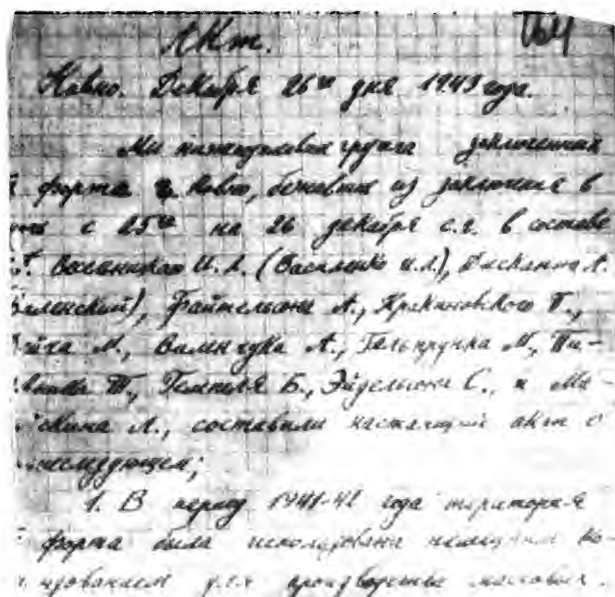 164
Акт.
Ковно. Декабря 26го дня 1943 года.
Мы нижеуказанная группа заключенных
форта г. Ковно, бежавших из заключения в
с 25го на 26 декабря с.г. в составе
Весельницкого И. Л. (Василенко И.Л.), Дискант А.
Виленский), Файтельсона А., Кракиновского П.,
М., Валенчука А., Гельтрунка М., Пи-
Т., Темпеля Б., Эйдельсона С., и Ма-
А., составили настоящий акт о
нижеследующем;
1. В период 1941-42 года территория
форта была использована немецким ко-
мандованием для производства массовых